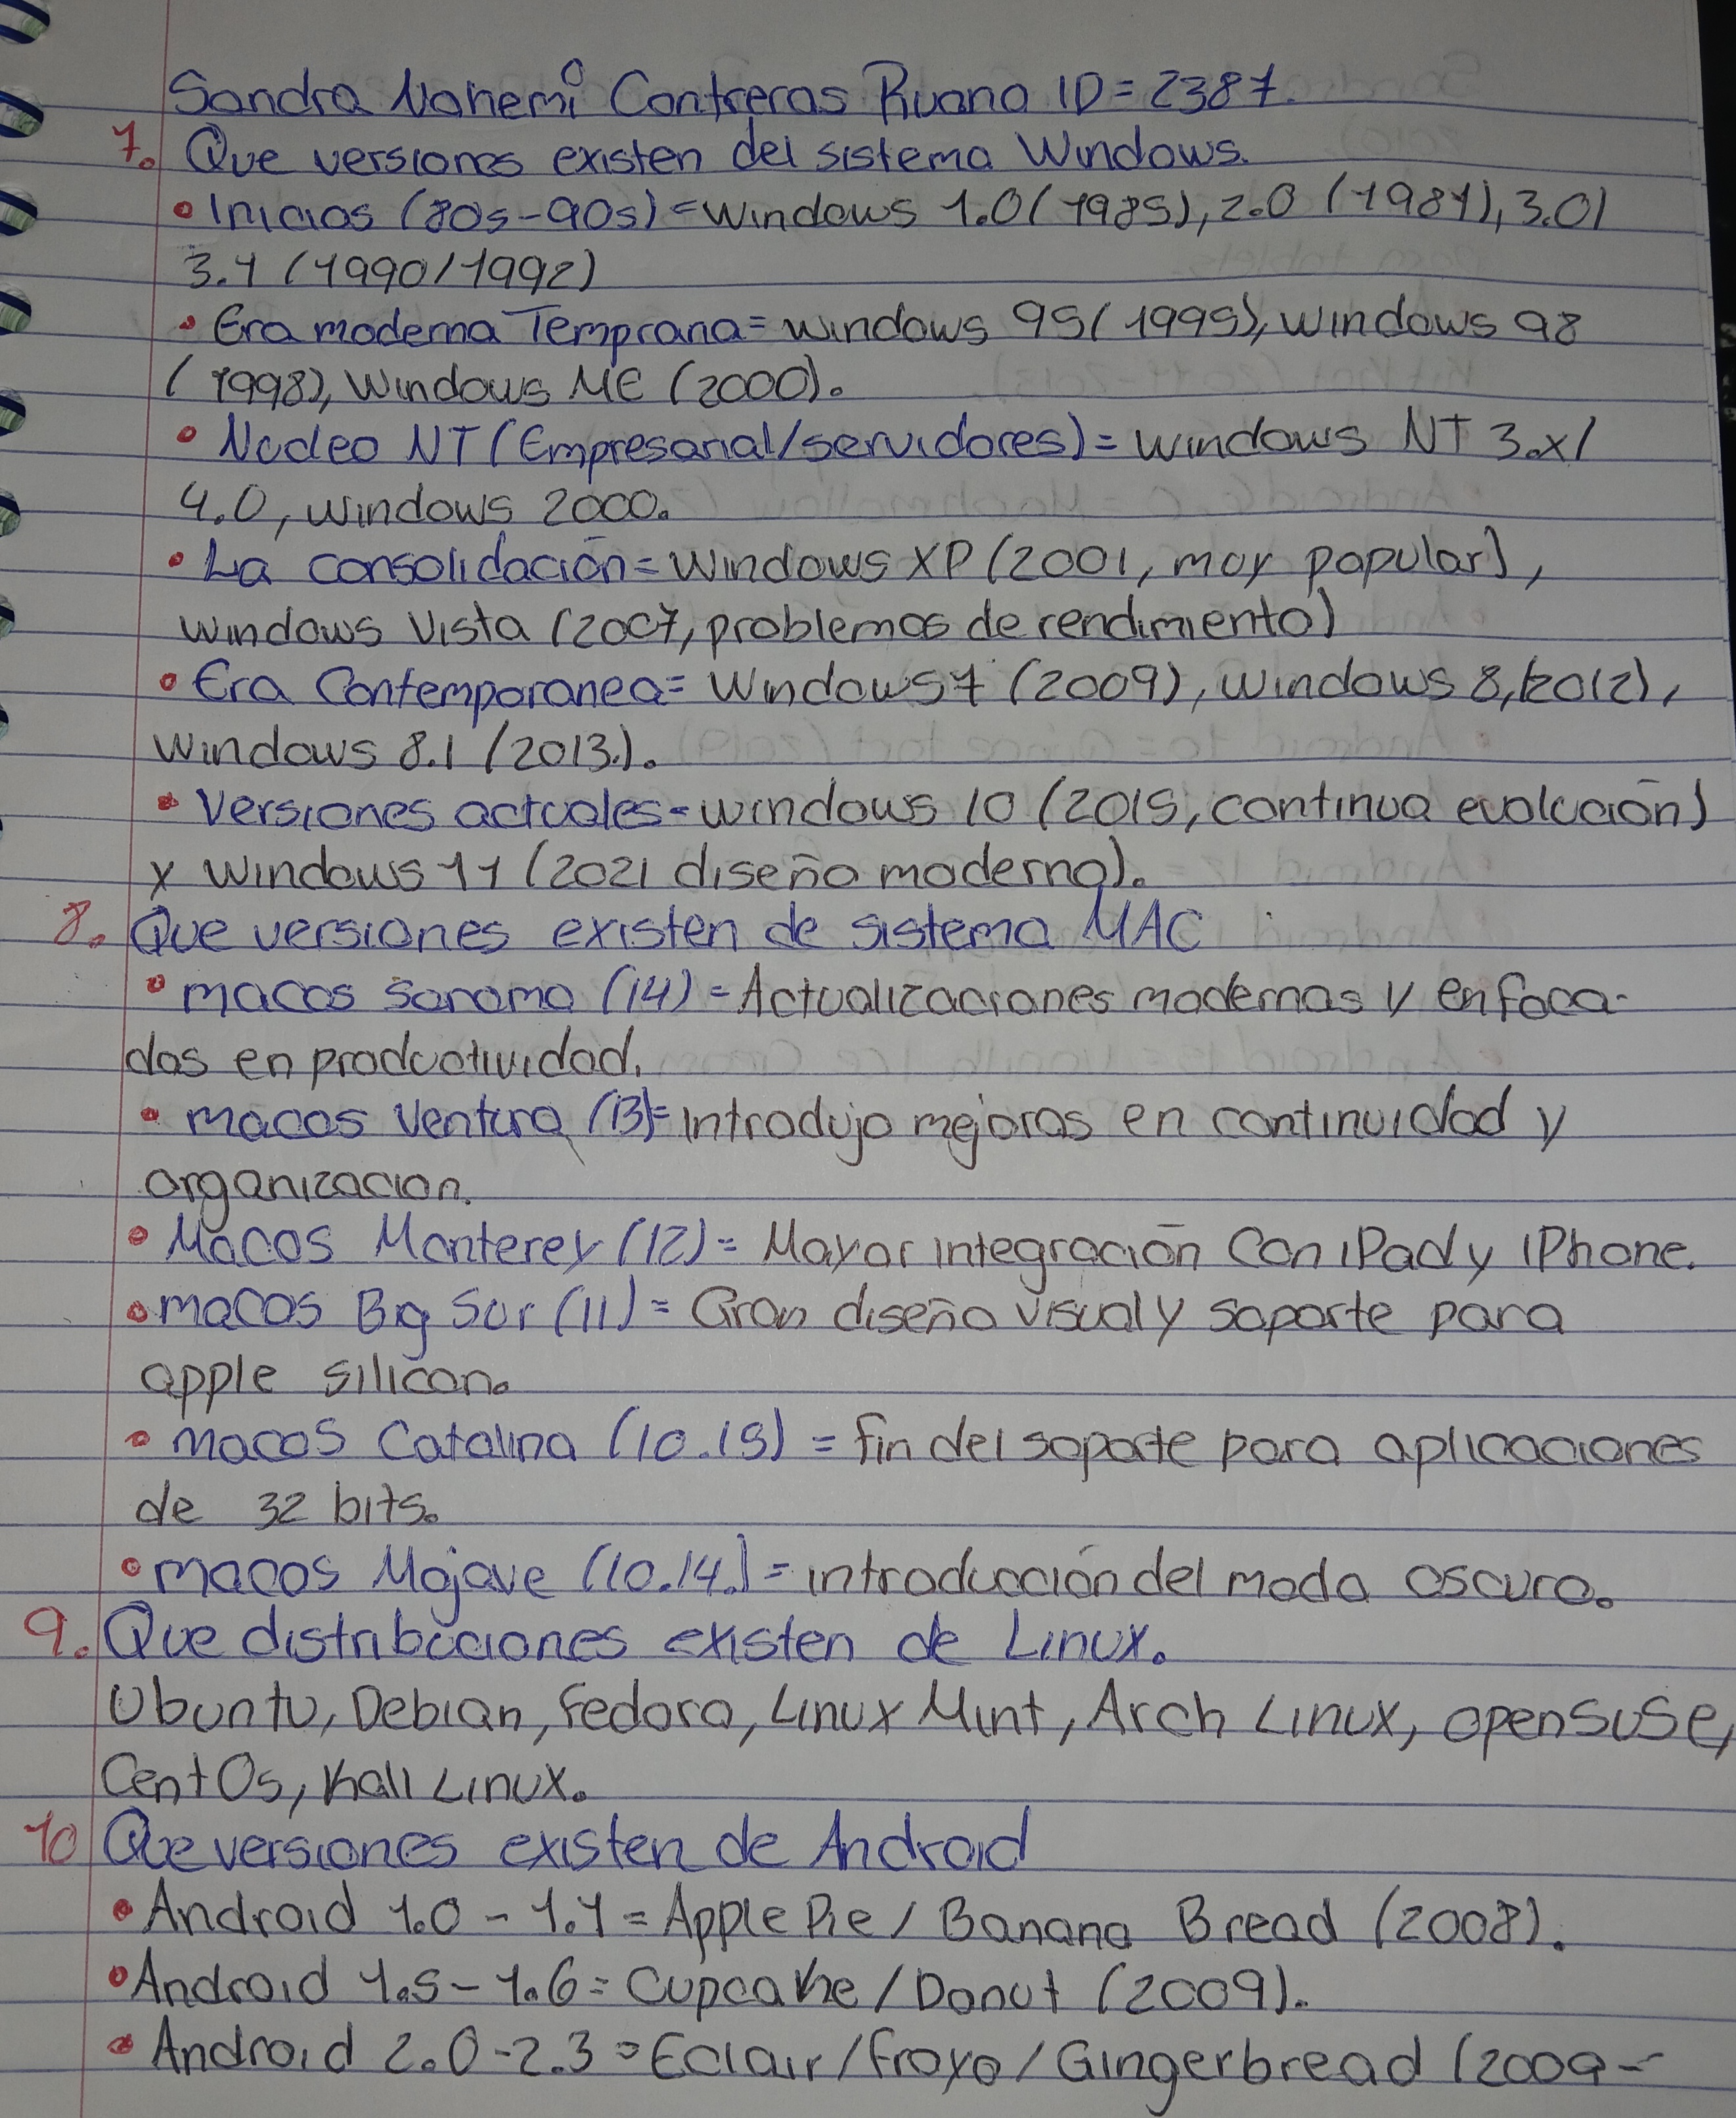 Sandra Nohemi Contreras Ruano ID = 2387.
7. Que versiones existen del sistema Windows.
• Inicios (80s-90s) = Windows 1.0 (1985), 2.0 (1987), 3.0/
3.1 (1990/1992)
• Era moderna Temprana = windows 95 (1995), windows 98
(1998), Windows ME (2000).
• Nucleo NT (Empresarial/servidores) = windows NT 3.x/
4.0, windows 2000.
• La consolidación = Windows XP (2001, muy popular),
windows Vista (2007, problemas de rendimiento)
• Era Contemporanea = Windows 7 (2009), windows 8, (2012),
windows 8.1 (2013.).
• Versiones actuales = windows 10 (2015, continua evolución)
y windows 11 (2021 diseño moderno).
8. Que versiones existen de sistema MAC
• macos Sonoma (14) = Actualizaciones modernas y enfoca-
das en productividad.
• macos Ventura (13) = Introdujo mejoras en continuidad y
organizacion.
• Macos Monterey (12) = Mayor integración Con iPad y iPhone.
• macos Big Sur (11) = Gran diseño visual y soporte para
apple silicon.
• macos Catalina (10.15) = fin del soporte para aplicaciones
de 32 bits.
• macos Mojave (10.14.) = introducción del modo oscuro.
9. Que distribuciones existen de Linux.
Ubuntu, Debian, Fedora, Linux Mint, Arch Linux, openSuSe,
CentOs, Kali Linux.
10 Que versiones existen de Android
• Android 1.0 - 1.1 = Apple Pie / Banana Bread (2008).
• Android 1.5 - 1.6 = Cupcake / Donut (2009).
• Android 2.0 - 2.3 = Eclair / Froyo / Gingerbread (2009 -